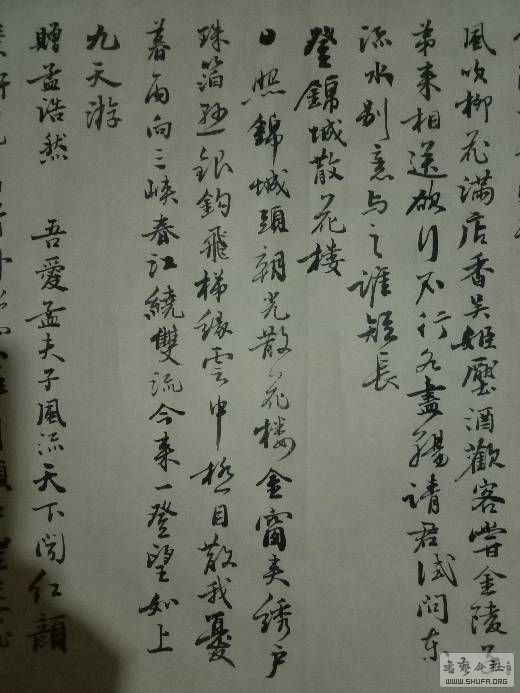 風吹柳花滿店香吴姬壓酒歡客嘗金陵
弟来相送欲行不行各盡觴請君試問東
流水别意与之誰短長
登錦城散花楼
日照錦城頭朝光散花楼金窗夾綉户
珠箔懸銀鈎飛梯緑雲中極目散我憂
暮雨向三峡春江繞雙流今来一登望如上
九天游
贈孟浩然 吾愛孟夫子風流天下聞紅顔
WWW.SHUFA.ORG